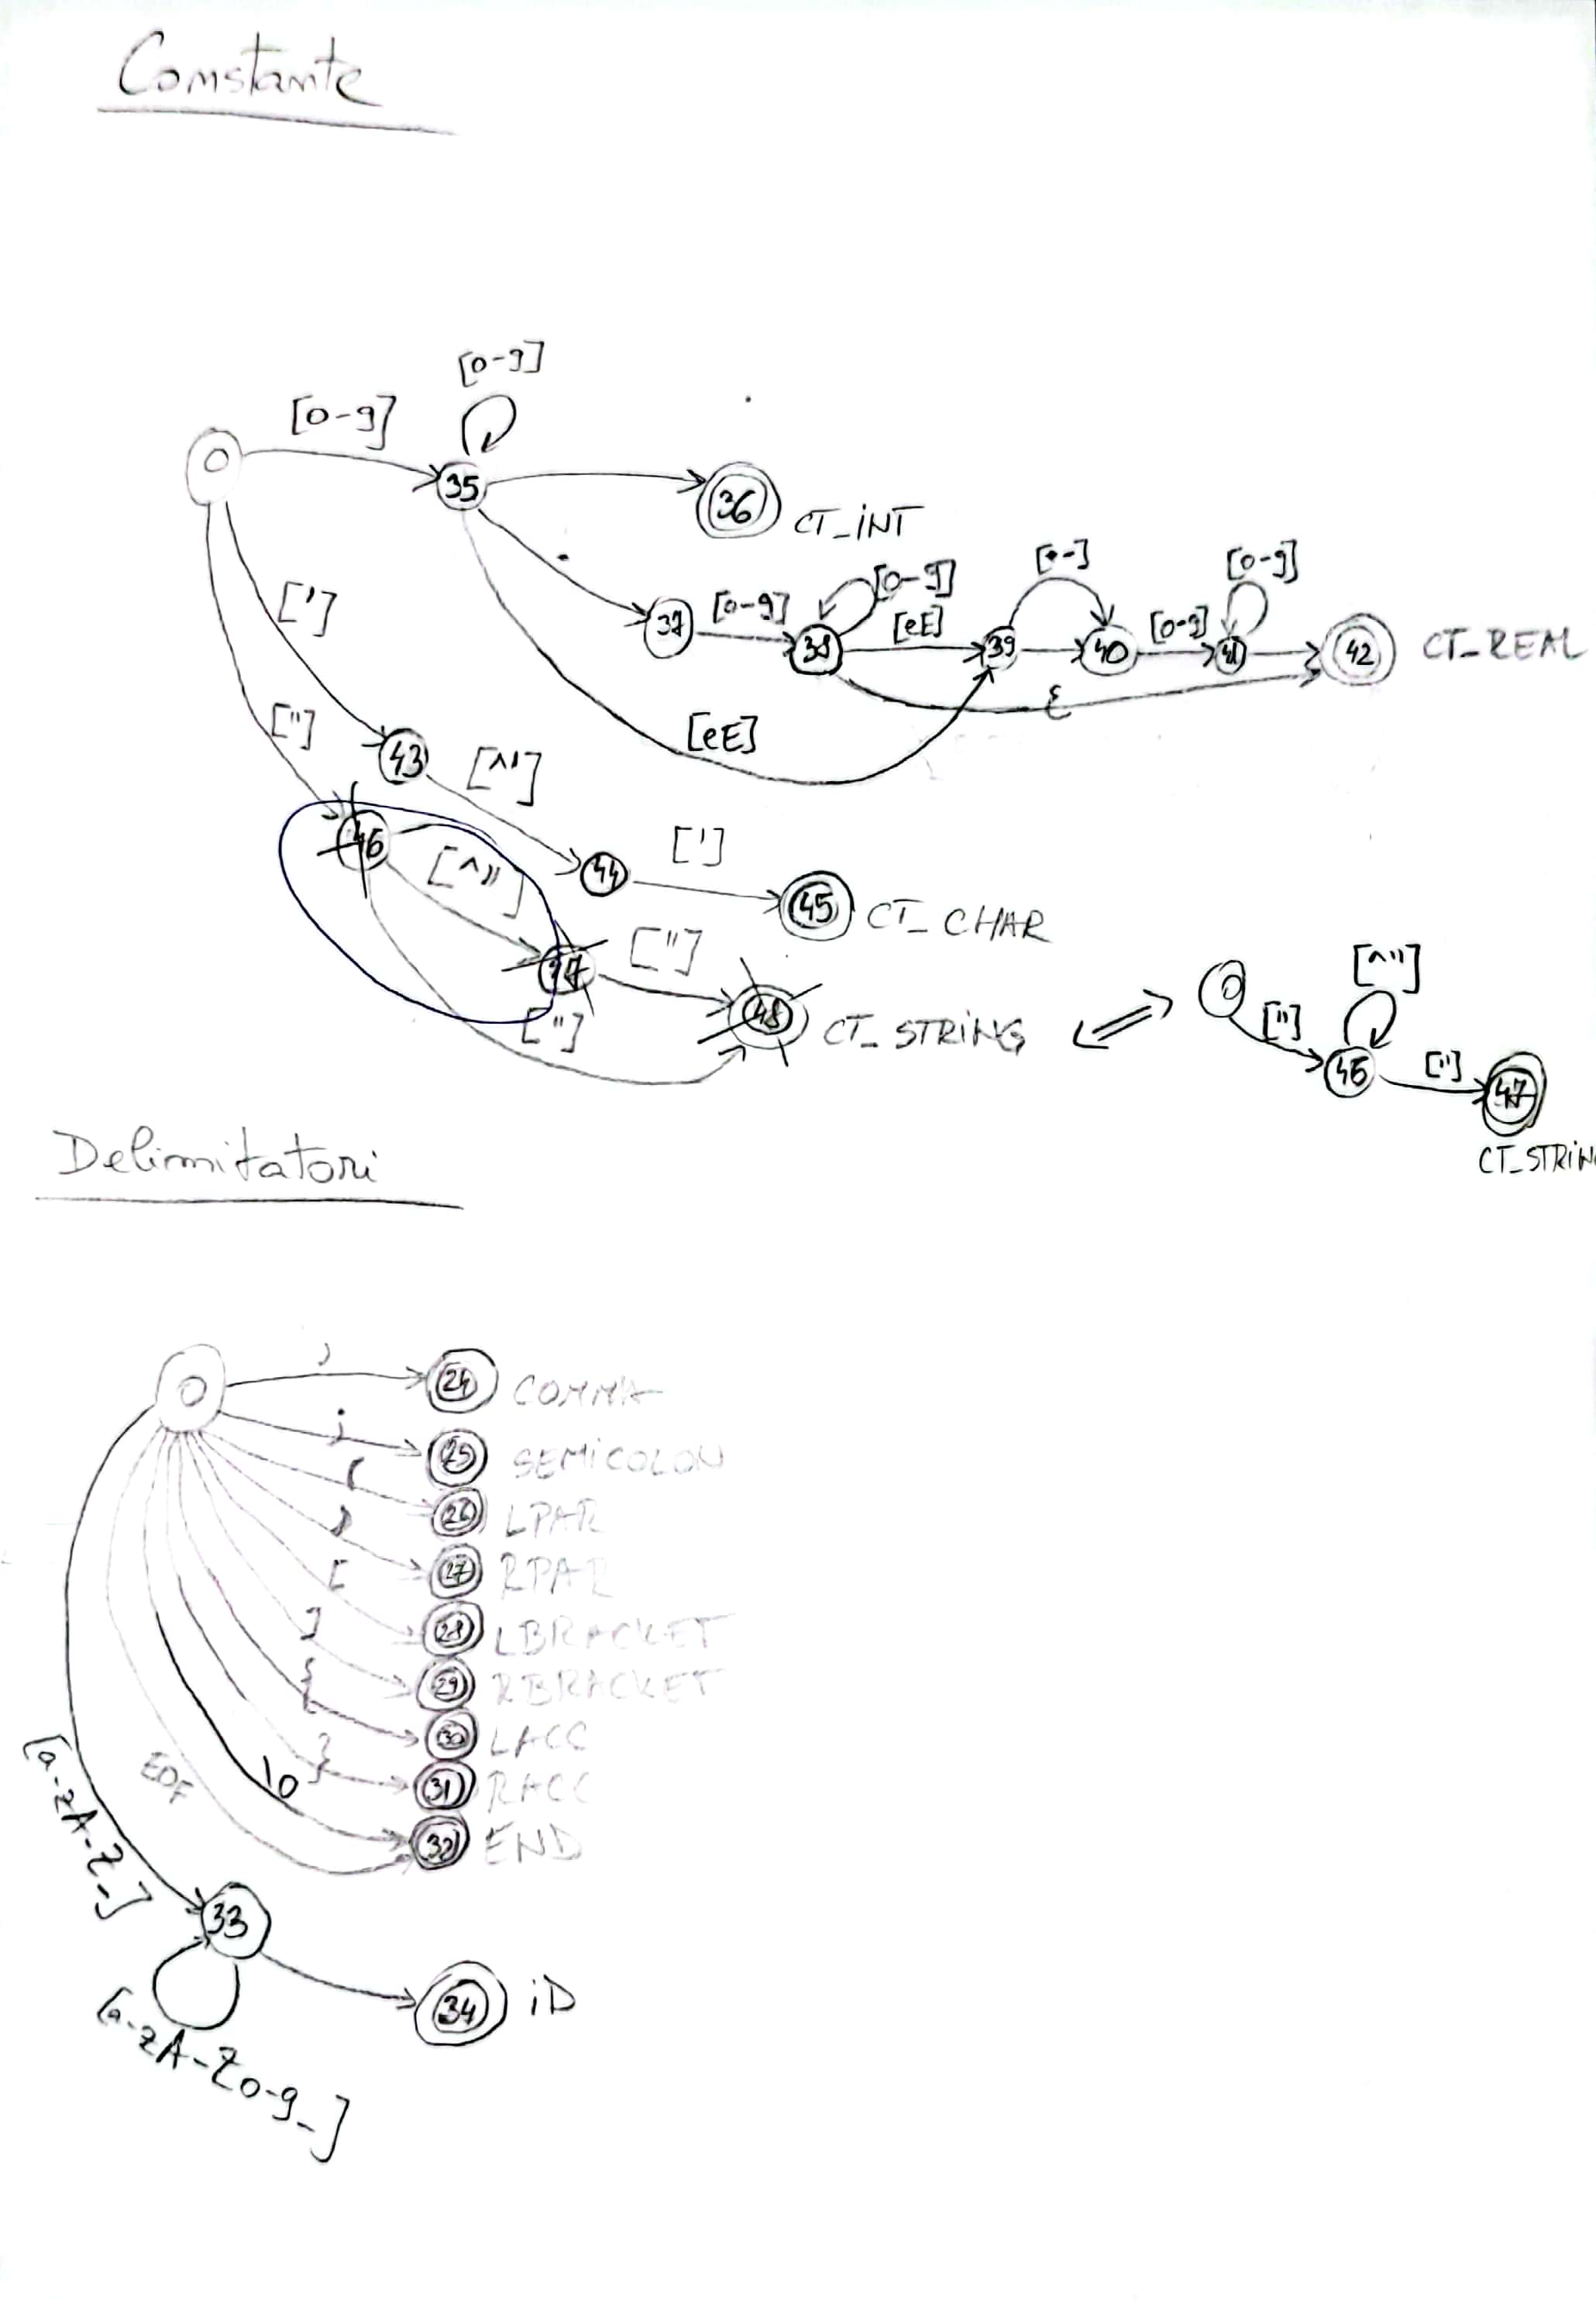 Constante
[0-9]
[0-9]
0
35
36
CT_INT
.
[0-9]
[+-]
[0-9]
[']
37
[0-9]
38
[eE]
39
40
[0-9]
41
42
CT_REAL
ε
["]
[eE]
43
[^']
46
[^"]
44
[']
45
CT_CHAR
47
["]
["]
48
CT_STRING
0
["]
[^"]
46
["]
47
CT_STRIN
Delimitatori
0
,
24
COMMA
;
25
SEMICOLON
(
26
LPAR
)
27
RPAR
[
28
LBRACKET
]
29
RBRACKET
{
30
LACC
}
31
RACC
EOF
\0
32
END
[a-zA-Z_]
33
34
iD
[a-zA-Z0-9_]